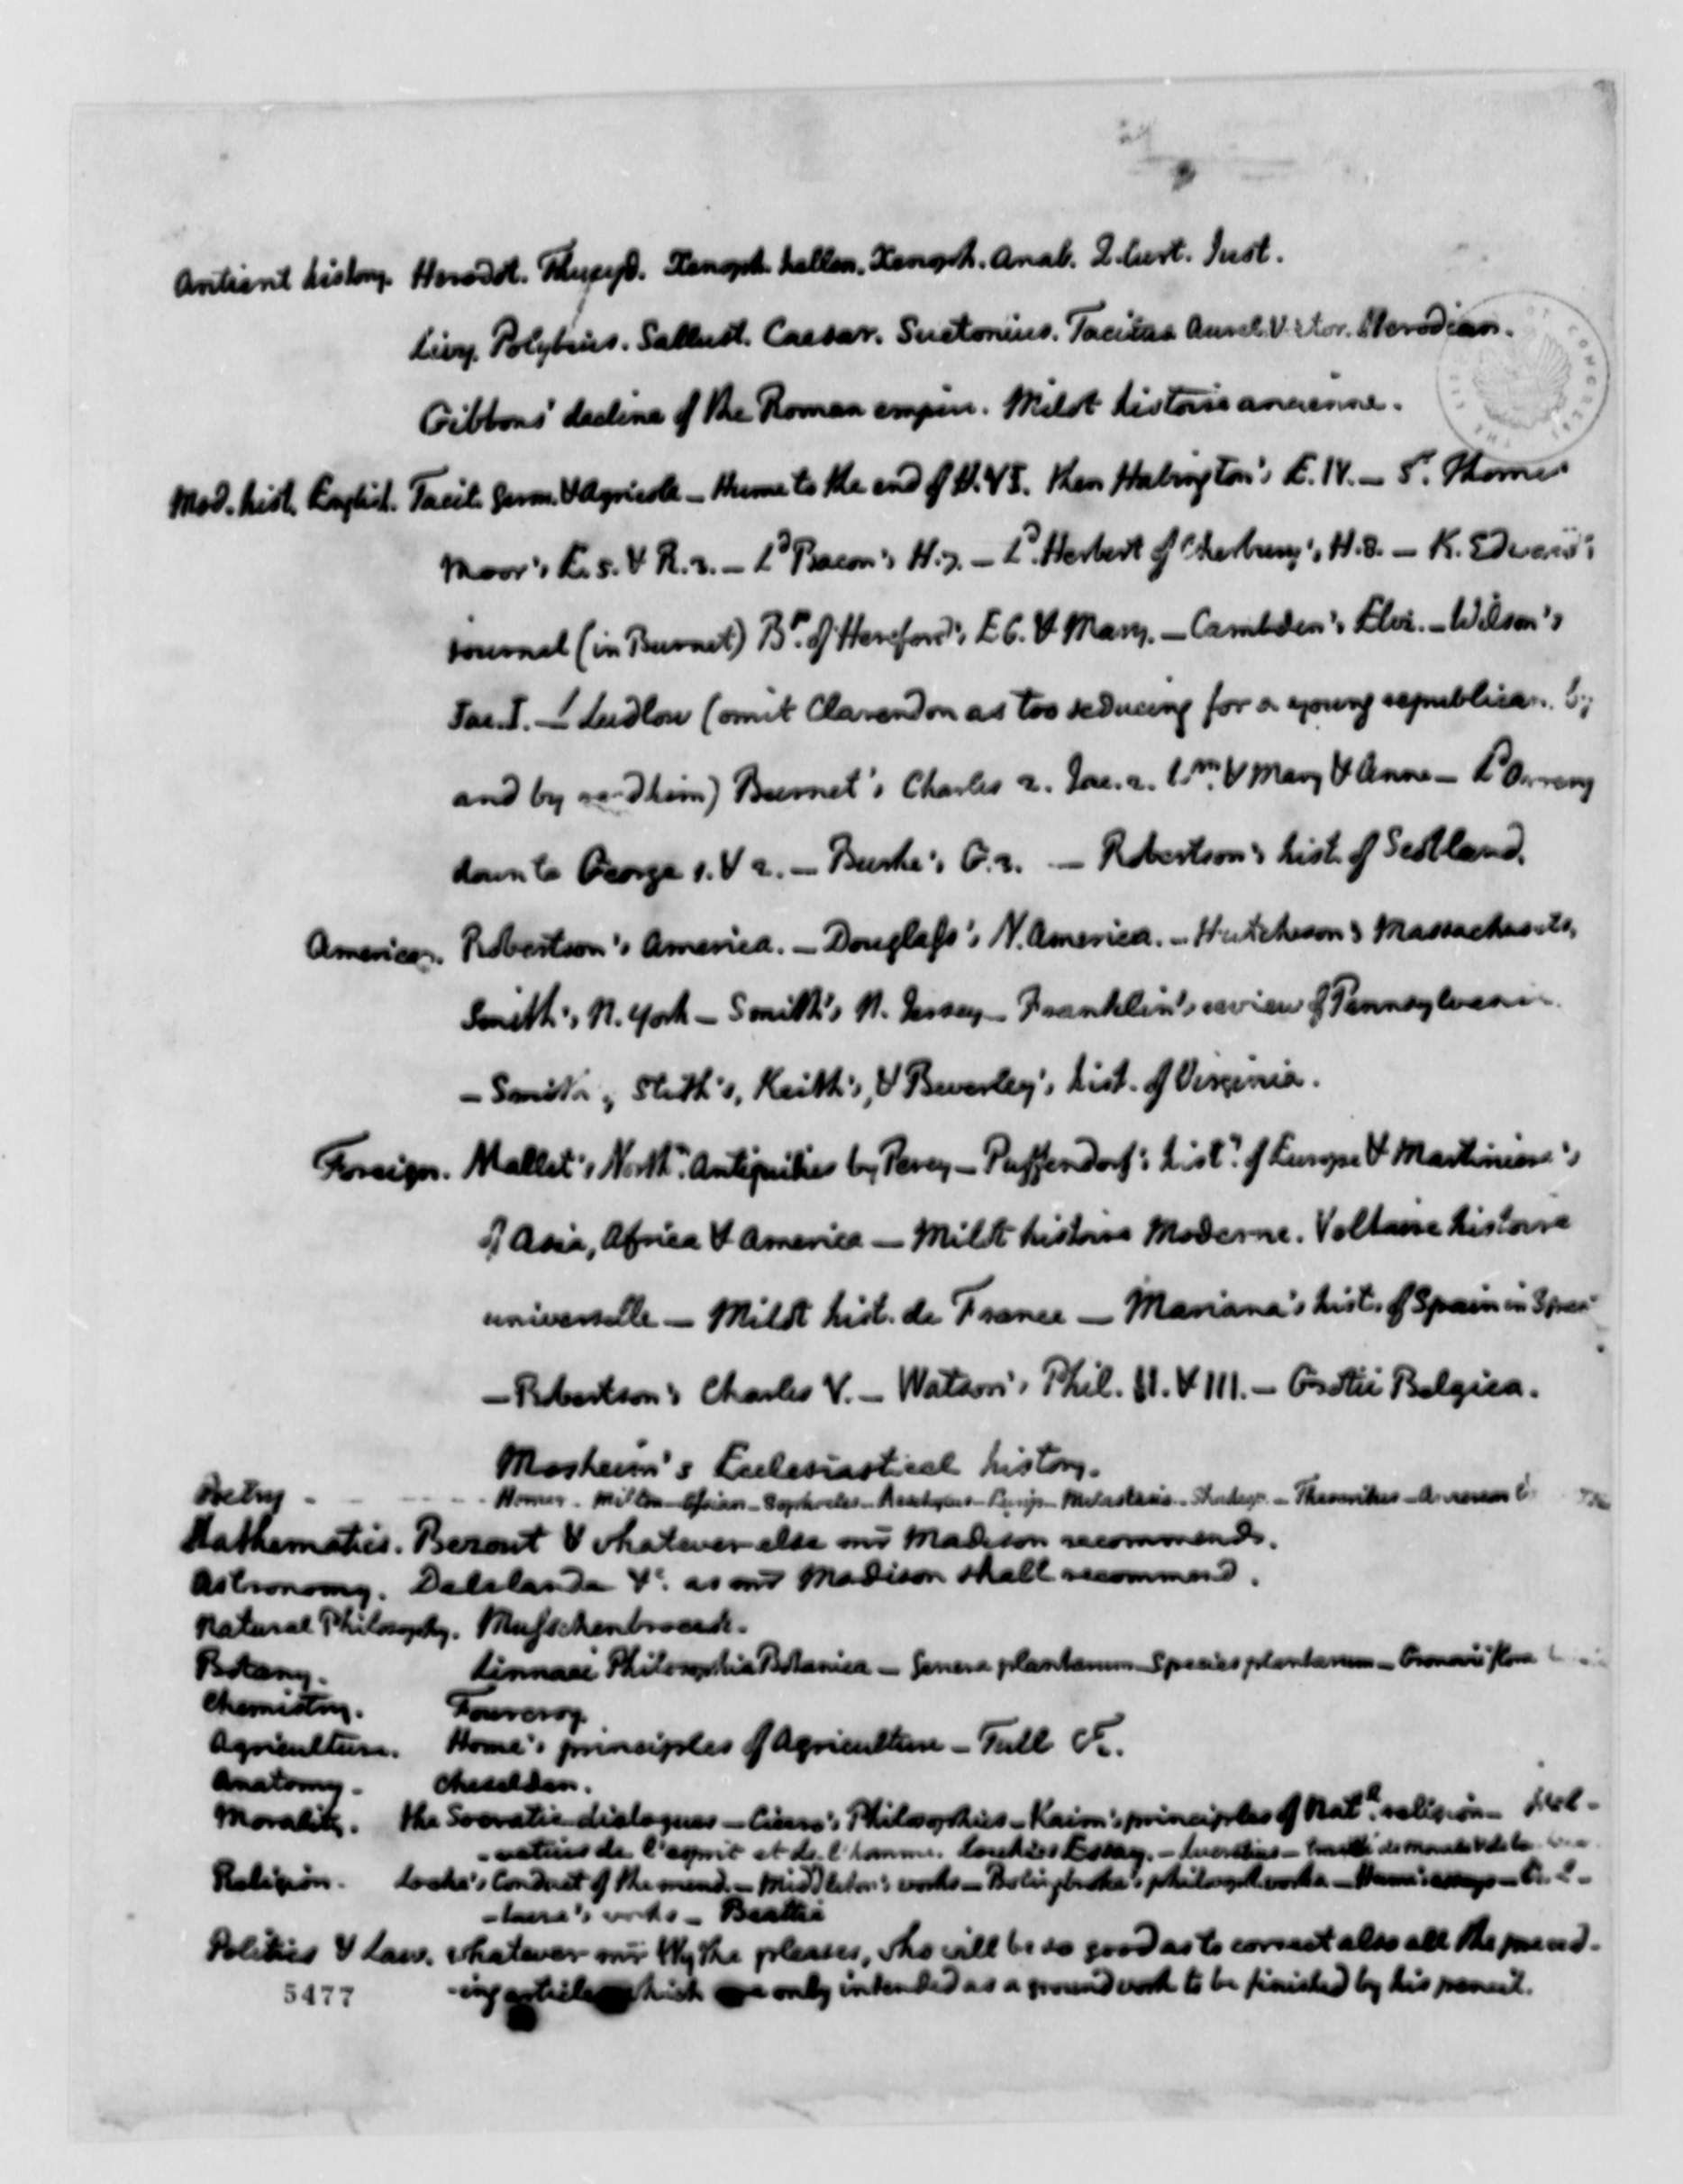 Antient history. Herodot. Thucyd. Xenoph. hellen. Xenoph. Anab. Q. Curt. Just.
Livy. Polybius. Sallust. Caesar. Suetonius. Tacitus. Aurel. Victor. Herodian.
Gibbons' decline of the Roman empire. Milot histoire ancienne.
Mod. hist. English. Tacit. Germ. & Agricola - Hume to the end of H.VI. then Habington's E.IV. - Sr. Thomas
Moor's E.5. & R.3. - Ld. Bacon's H.7. - Ld. Herbert of Cherbury's H.8. - K. Edward's
journal (in Burnet) Bp. of Hereford's E.6. & Mary. - Cambden's Eliz. - Wilson's
Jac.I. - Ludlow (omit Clarendon as too seducing for a young republican. by
and by read him) Burnet's Charles 2. Jac.2. Wm. & Mary & Anne - Ld. Orrery
down to George 1. & 2. - Burke's G.3. - Robertson's hist. of Scotland.
American. Robertson's America. - Douglass's N. America. - Hutcheson's Massachusets.
Smith's N. York - Smith's N. Jersey - Franklin's review of Pennsylvania.
- Smith's, Stith's, Keith's, & Beverley's hist. of Virginia.
Foreign. Mallet's North. Antiquities by Percy - Puffendorf's hist. of Europe & Martiniere's
of Asia, Africa & America - Milot histoire Moderne. Voltaire histoire
universelle - Milot hist. de France - Mariana's hist. of Spain in Span.
- Robertson's Charles V. - Watson's Phil. II. & III. - Grotii Belgica.
Mosheim's Ecclesiastical history.
Poetry - Homer - Milton - Ossian - Sophocles - Aeschylus - Eurip. - Metastasio - Shakesp. - Theocritus - Anacreon
Mathematics. Bezout & whatever else mr Madison recommends.
Astronomy. Delalande &c. as mr Madison shall recommend.
Natural Philosophy. Musschenbroeck.
Botany. Linnaei Philosophia Botanica - Genera plantarum - Species plantarum - Gronovii flora
Chemistry. Fourcroy.
Agriculture. Home's principles of Agriculture - Tull &c.
Anatomy. Cheselden.
Morality. the Socratic dialogues - Cicero's Philosophies - Kaim's principles of Natl. religion - Hel-
-vetius de l'esprit et de l'homme. Locke's Essay. - Lucretius - Traité de Morale & de
Religion. Locke's Conduct of the mind. - Middleton's works - Bolingbroke's philosoph. works - Hume's essays - Vol-
-taire's works - Beattie
Politics & Law. whatever mr Wythe pleases, who will be so good as to correct also all the preced-
-ing articles which are only intended as a ground work to be finished by his pencil.
5477